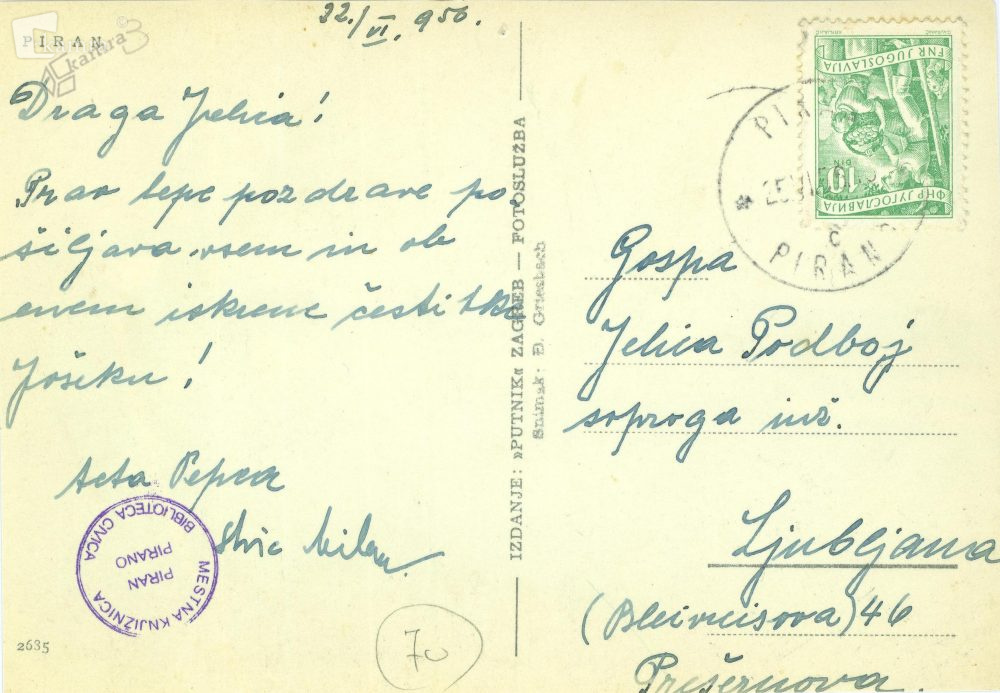 PIRAN
kamra
22./VI. 956.
Draga Jelica!
Prav lepe pozdrave po
šiljava vsem in ob
enem iskrene čestitke
Jošku!
teta Pepca
stric Milan
MESTNA KNJIŽNICA
PIRAN
PIRANO
BIBLIOTECA CIVICA
2635
70
IZDANJE: »PUTNIK« ZAGREB — FOTOSLUŽBA
Snimak: Đ. Griesbach
FNR JUGOSLAVIJA
10 DIN
ФНР ЈУГОСЛАВИЈА
PIRAN
C
Gospa
Jelica Podboj
soproga inž.
Ljubljana
(Bleiweisova) 46
Prešernova